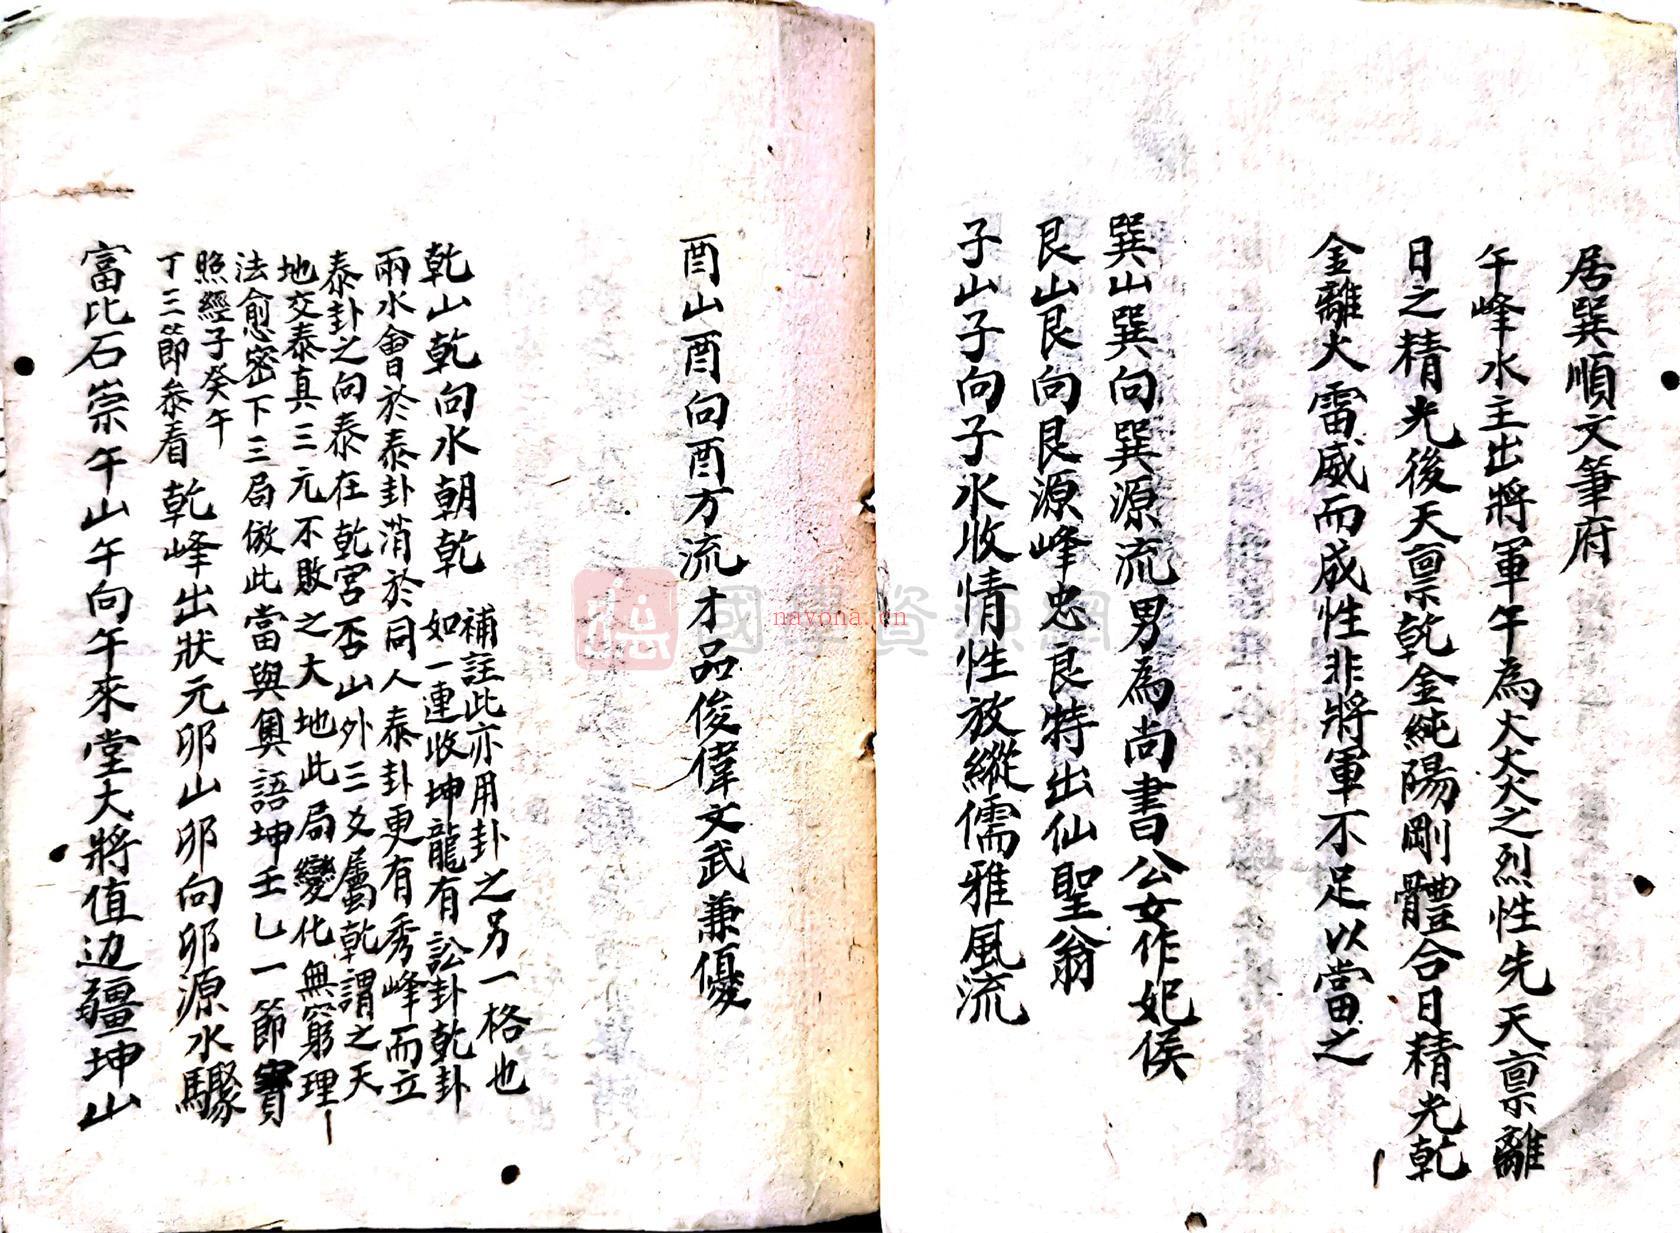 居巽順文筆府
午峰水主出將軍午為大大大之烈性先天禀離
日之精光後天禀乾金純陽剛體合日精光乾
金離火雷威而成性非將軍不足以當之
巽山巽向巽源流男為尚書公女作妃侯
艮山艮向艮源峰忠良特出仙聖翁
子山子向子水收情性放縱儒雅風流
酉山酉向酉方流才品俊偉文武兼優
乾山乾向水朝乾
補註此亦用卦之另一格也
如一連收坤龍有訟卦乾卦
兩水會於泰卦消於同人泰卦更有秀峰而立
泰卦之向泰在乾宮否山外三爻屬乾謂之天
地交泰真三元不敗之大地此局變化無窮理
法愈密下三局倣此當與奧語坤壬乙一節寶
照經子癸午
丁三節參看
乾峰出狀元卯山卯向卯源水驟
富比石崇午山午向午來堂大將值边疆坤山
國學資源網
nayona.cn